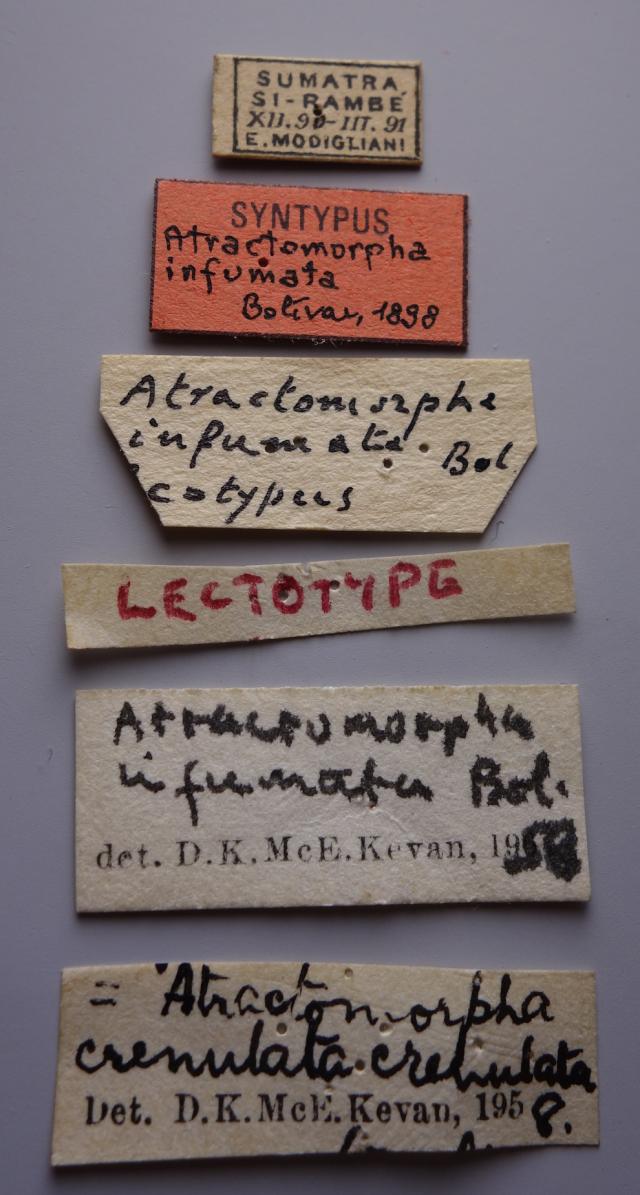 SUMATRA
SI-RAMBÉ
XII.90-III.91
E. MODIGLIANI
SYNTYPUS
Atractomorpha
infumata
Bolívar, 1898
Atractomorpha
infumata. Bol
cotypus
LECTOTYPE
Atractomorpha
infumata Bol.
det. D.K.McE.Kevan, 19
= Atractomorpha
crenulata crenulata
Det. D.K.McE.Kevan, 1958.